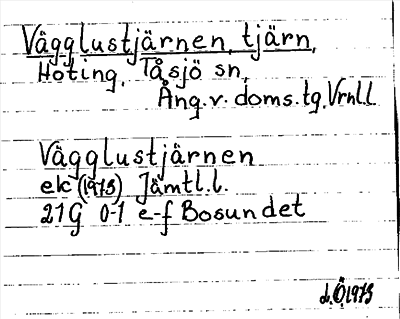 Vägglustjärnen, tjärn,
Hoting, Tåsjö sn,
Ång.v. doms.tg, Vrnl.l
Vägglustjärnen
ek (1973) Jämtl.l.
21G 0-1 e-f Bosundet
1973